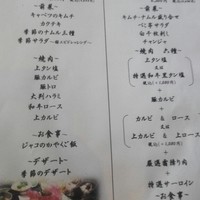 ~前菜~
キャベツのキムチ
カクテキ
季節のナムル三種
季節サラダ
~焼肉~
上タン塩
豚カルビ
豚トロ
大判ハラミ
和牛ロース
上カルビ
~お食事~
ジャコのおやくご飯
~デザート~
季節のデザート
~前菜~
キムチ・ナムル盛り合せ
べに菜サラダ
白千枚刺し
チャンジャ
~焼肉 六種~
上タン塩
又は
特選和牛黒タン塩
+
豚カルビ
+
カルビ & ロース
又は
上カルビ & 上ロース
+
厳選霜降り肉
+
特選サーロイン
~お食事~